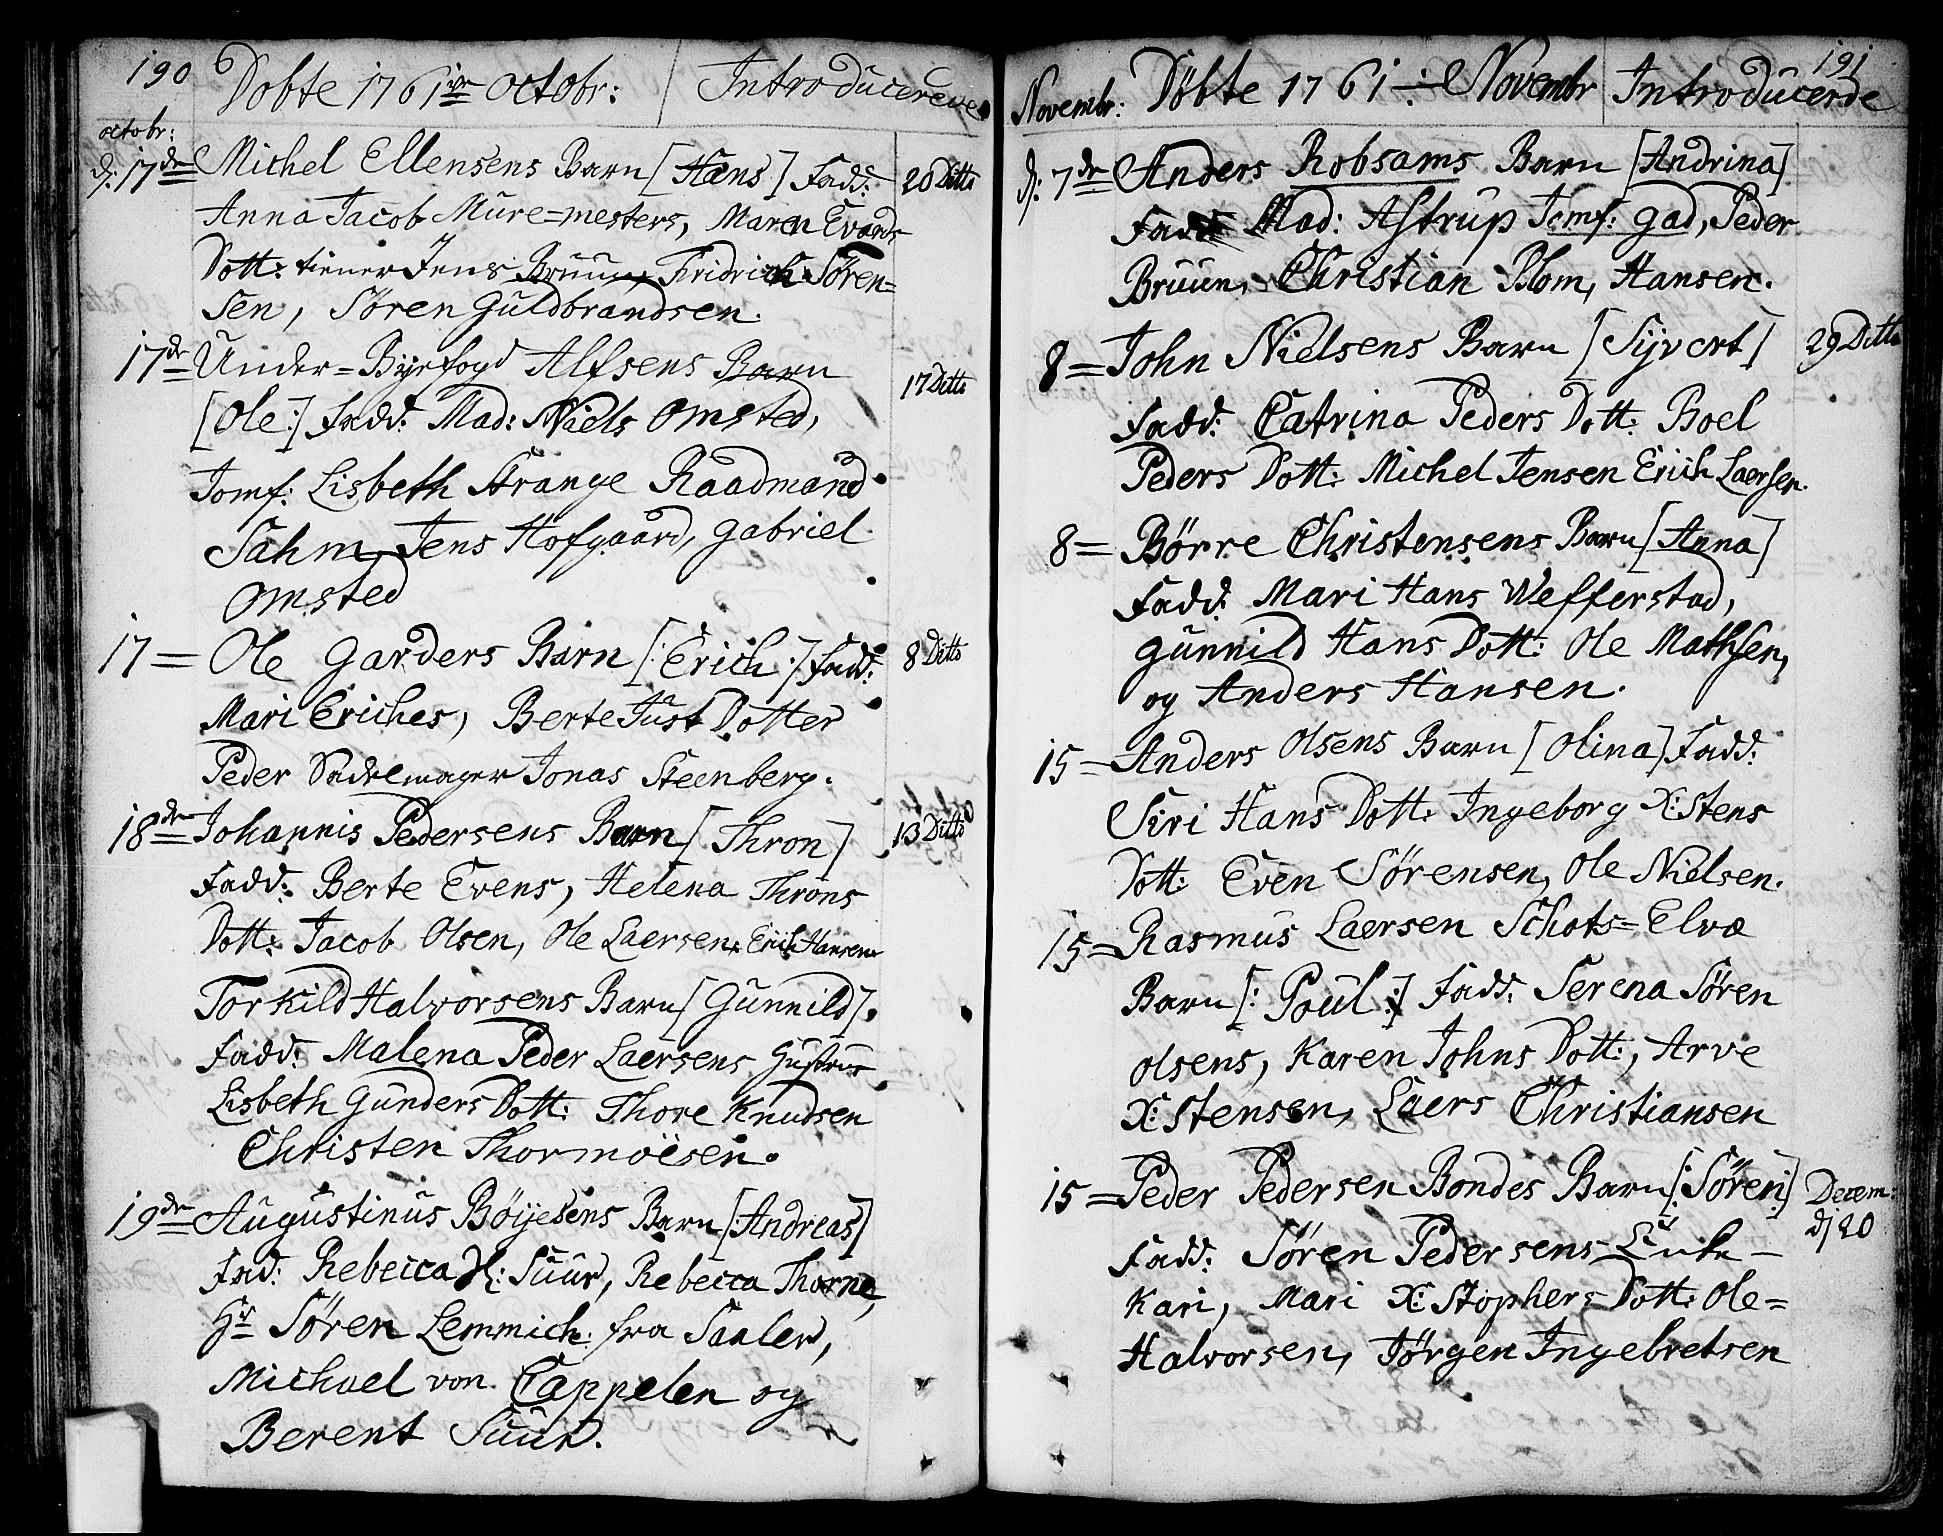 190 Dobte 1761 octobr: Introducerede
octobr:
dj: 17de Michel Ellensens Barn [Hans] Fadd: 20 Ditto
Anna Jacob Mure=mesters, Maren Evards
Dott: tiener Jens Bruun, Fridrich Sören=
sen, Sören Guldbrandsen.
17de Under=Byefogd Alfsens Barn 17 Ditto
[Ole:] Fadd: Mad: Niels Omsted,
Jomf: Lisbeth Strange Raadmand
Sahm, Jens Hofgaard, Gabriel
Omsted
17= Ole Garders Barn [:Erich:] Fadd: 8 Ditto
Mari Eriches, Berte Just Dotter
Peder Sadelmager Jonas Steenberg.
18de Johannis Pedersens Barn [Thron] 13 Ditto
Fadd: Berte Evens, Helena Throns
Dott: Jacob Olsen, Ole Laersen, Erich Hansen
Torkild Halvorsens Barn [Gunnild].
Fadd: Malena Peder Laersens Hustrue
Lisbeth Gunders Dott: Thore Knudsen
Christen Thormoesen.
19de Augustinus Böyesens Barn [:Andreas]
Fad: Rebecca H: Suur, Rebecca Thorne,
Hr Sören Lemmich: fra Saaler,
Michael von Cappelen og
Berent Suur.
191
Novembr: Döbte 1761 Novembr Introducerde
dj: 7de Anders Robsams Barn [Andrina]
Fadd Mad: Astrup Jomf: Gad, Peder
Bruun, Christian Blom, Hansen.
8= John Nielsens Barn [Syvert] 29 Ditto
Fadd: Catrina Peders Dott: Boel
Peders Dott: Michel Jensen Erich Laersen.
8= Börre Christensens Barn [Anna]
Fadd: Mari Hans Wefferstad,
Gunnild Hans Dott: Ole Mathsen,
og Anders Hansen.
15= Anders Olsens Barn [Olina] Fadd:
Siri Hans Dott: Ingeborg X:stens
Dott: Even Sörensen, Ole Nielsen.
15= Rasmus Laersen Schots=Elvæ
Barn [: Poul :] Fadd: Serena Sören
Olsens, Karen Johns Dott:, Arve
X:stensen, Laers Christiansen
15= Peder Pedersen Bondes Barn [:Sören] Decem:
dj 20
Fadd: Sören Pedersens Enke
Kari, Mari X:stophers Dott: Ole=
Halvorsen, Jörgen Ingebretsen